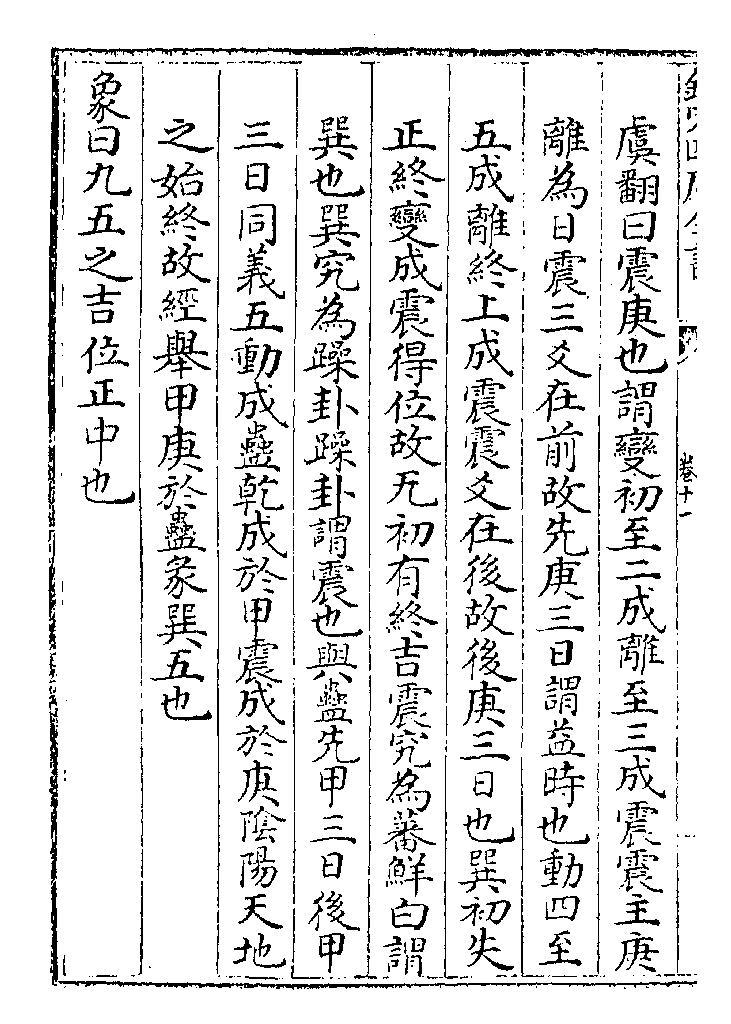 卷十一
虞翻曰震庚也謂變初至二成離至三成震震主庚
離為日震三爻在前故先庚三日謂益時也動四至
五成離終上成震震爻在後故後庚三日也巽初失
正終變成震得位故无初有終吉震究為蕃鮮白謂
巽也巽究為躁卦躁卦謂震也與蠱先甲三日後甲
三日同義五動成蠱乾成於甲震成於庚陰陽天地
之始終故經舉甲庚於蠱彖巽五也
象曰九五之吉位正中也